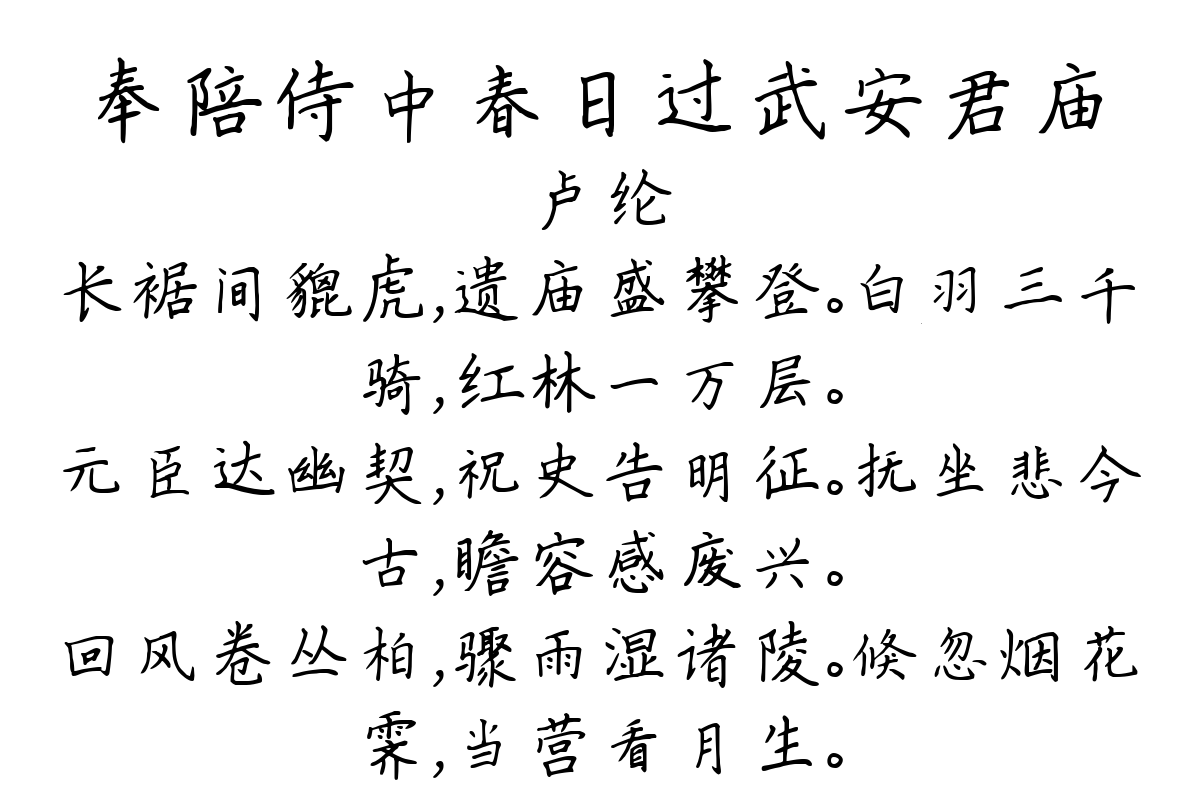 奉陪侍中春日过武安君庙
卢纶
长裾间貔虎,遗庙盛攀登。白羽三千
骑,红林一万层。
元臣达幽契,祝史告明征。抚坐悲今
古,瞻容感废兴。
回风卷丛柏,骤雨湿诸陵。倏忽烟花
霁,当营看月生。